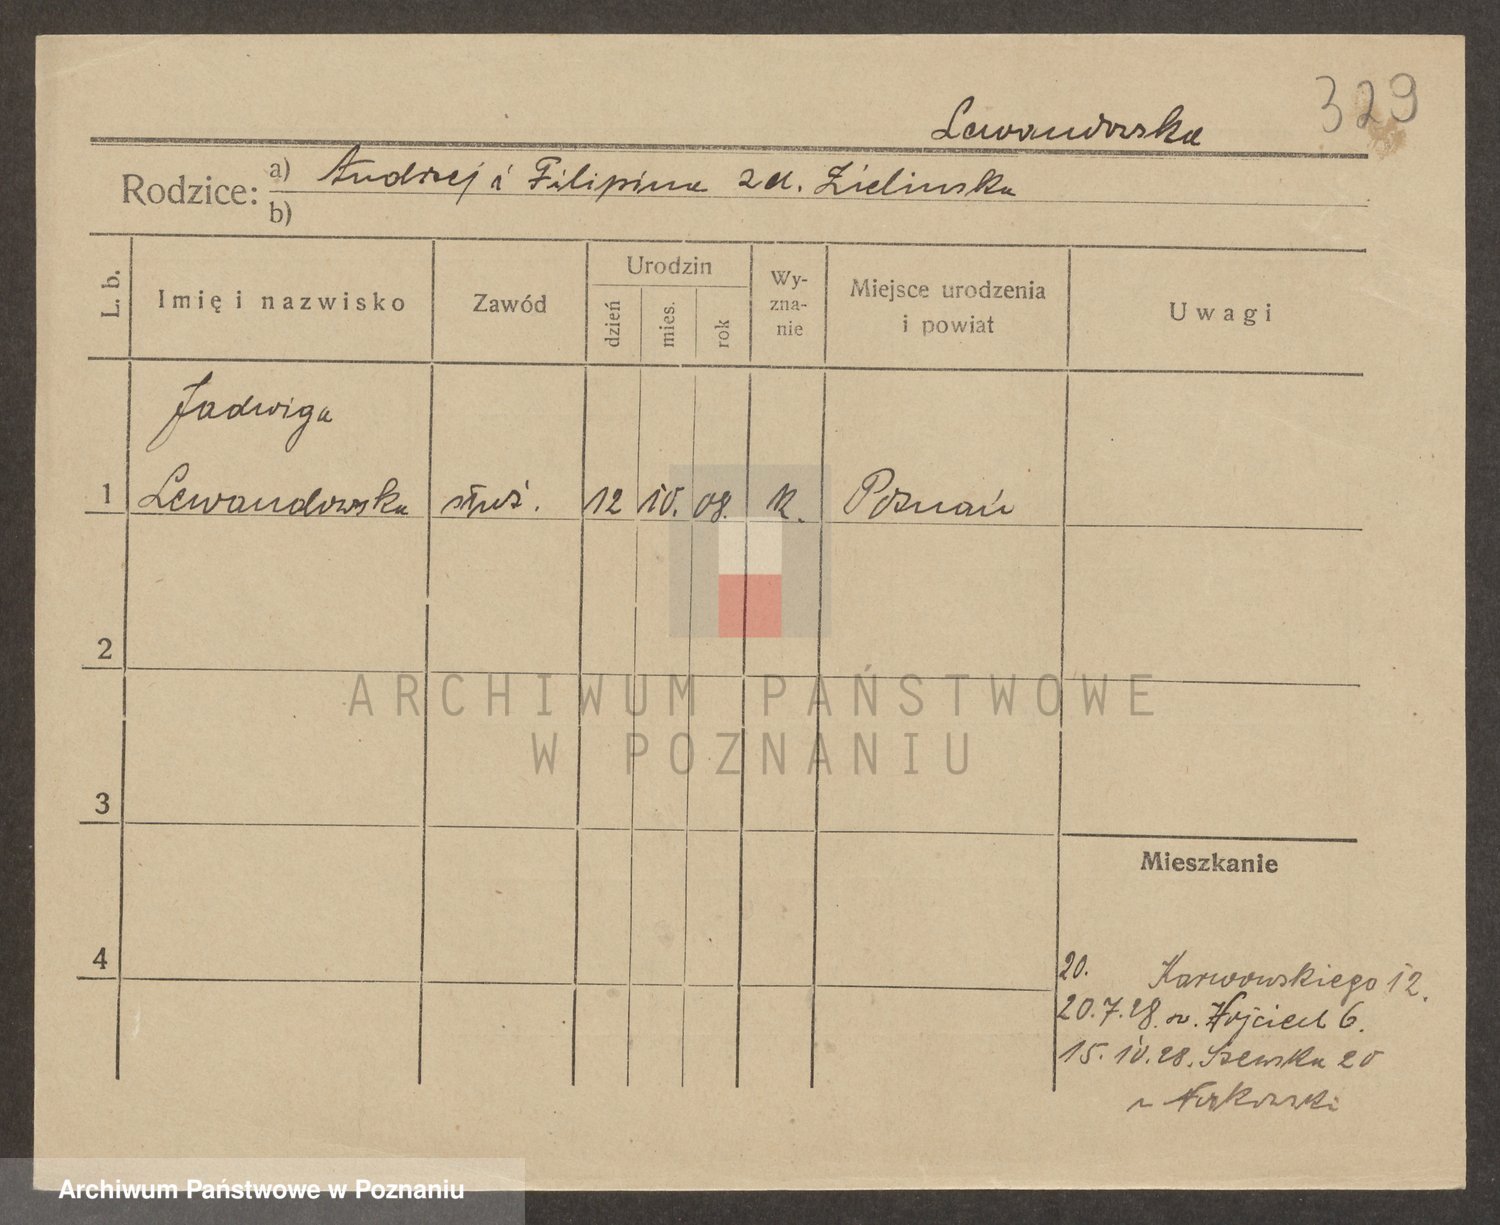 329
Lewandowska
Rodzice: a) Andrzej i Filipina zd. Zielinska
b)
L. b. Imię i nazwisko Zawód Urodzin dzień mies. rok Wy-zna-nie Miejsce urodzenia i powiat Uwagi
Jadwiga
1 Lewandowska służ. 12 10. 08. k. Poznań
2
ARCHIWUM PAŃSTWOWE
W POZNANIU
3
Mieszkanie
4
20. Karwowskiego 12.
20.7.28. św. Wojciech 6.
15.10.28. Szewska 20
Archiwum Państwowe w Poznaniu